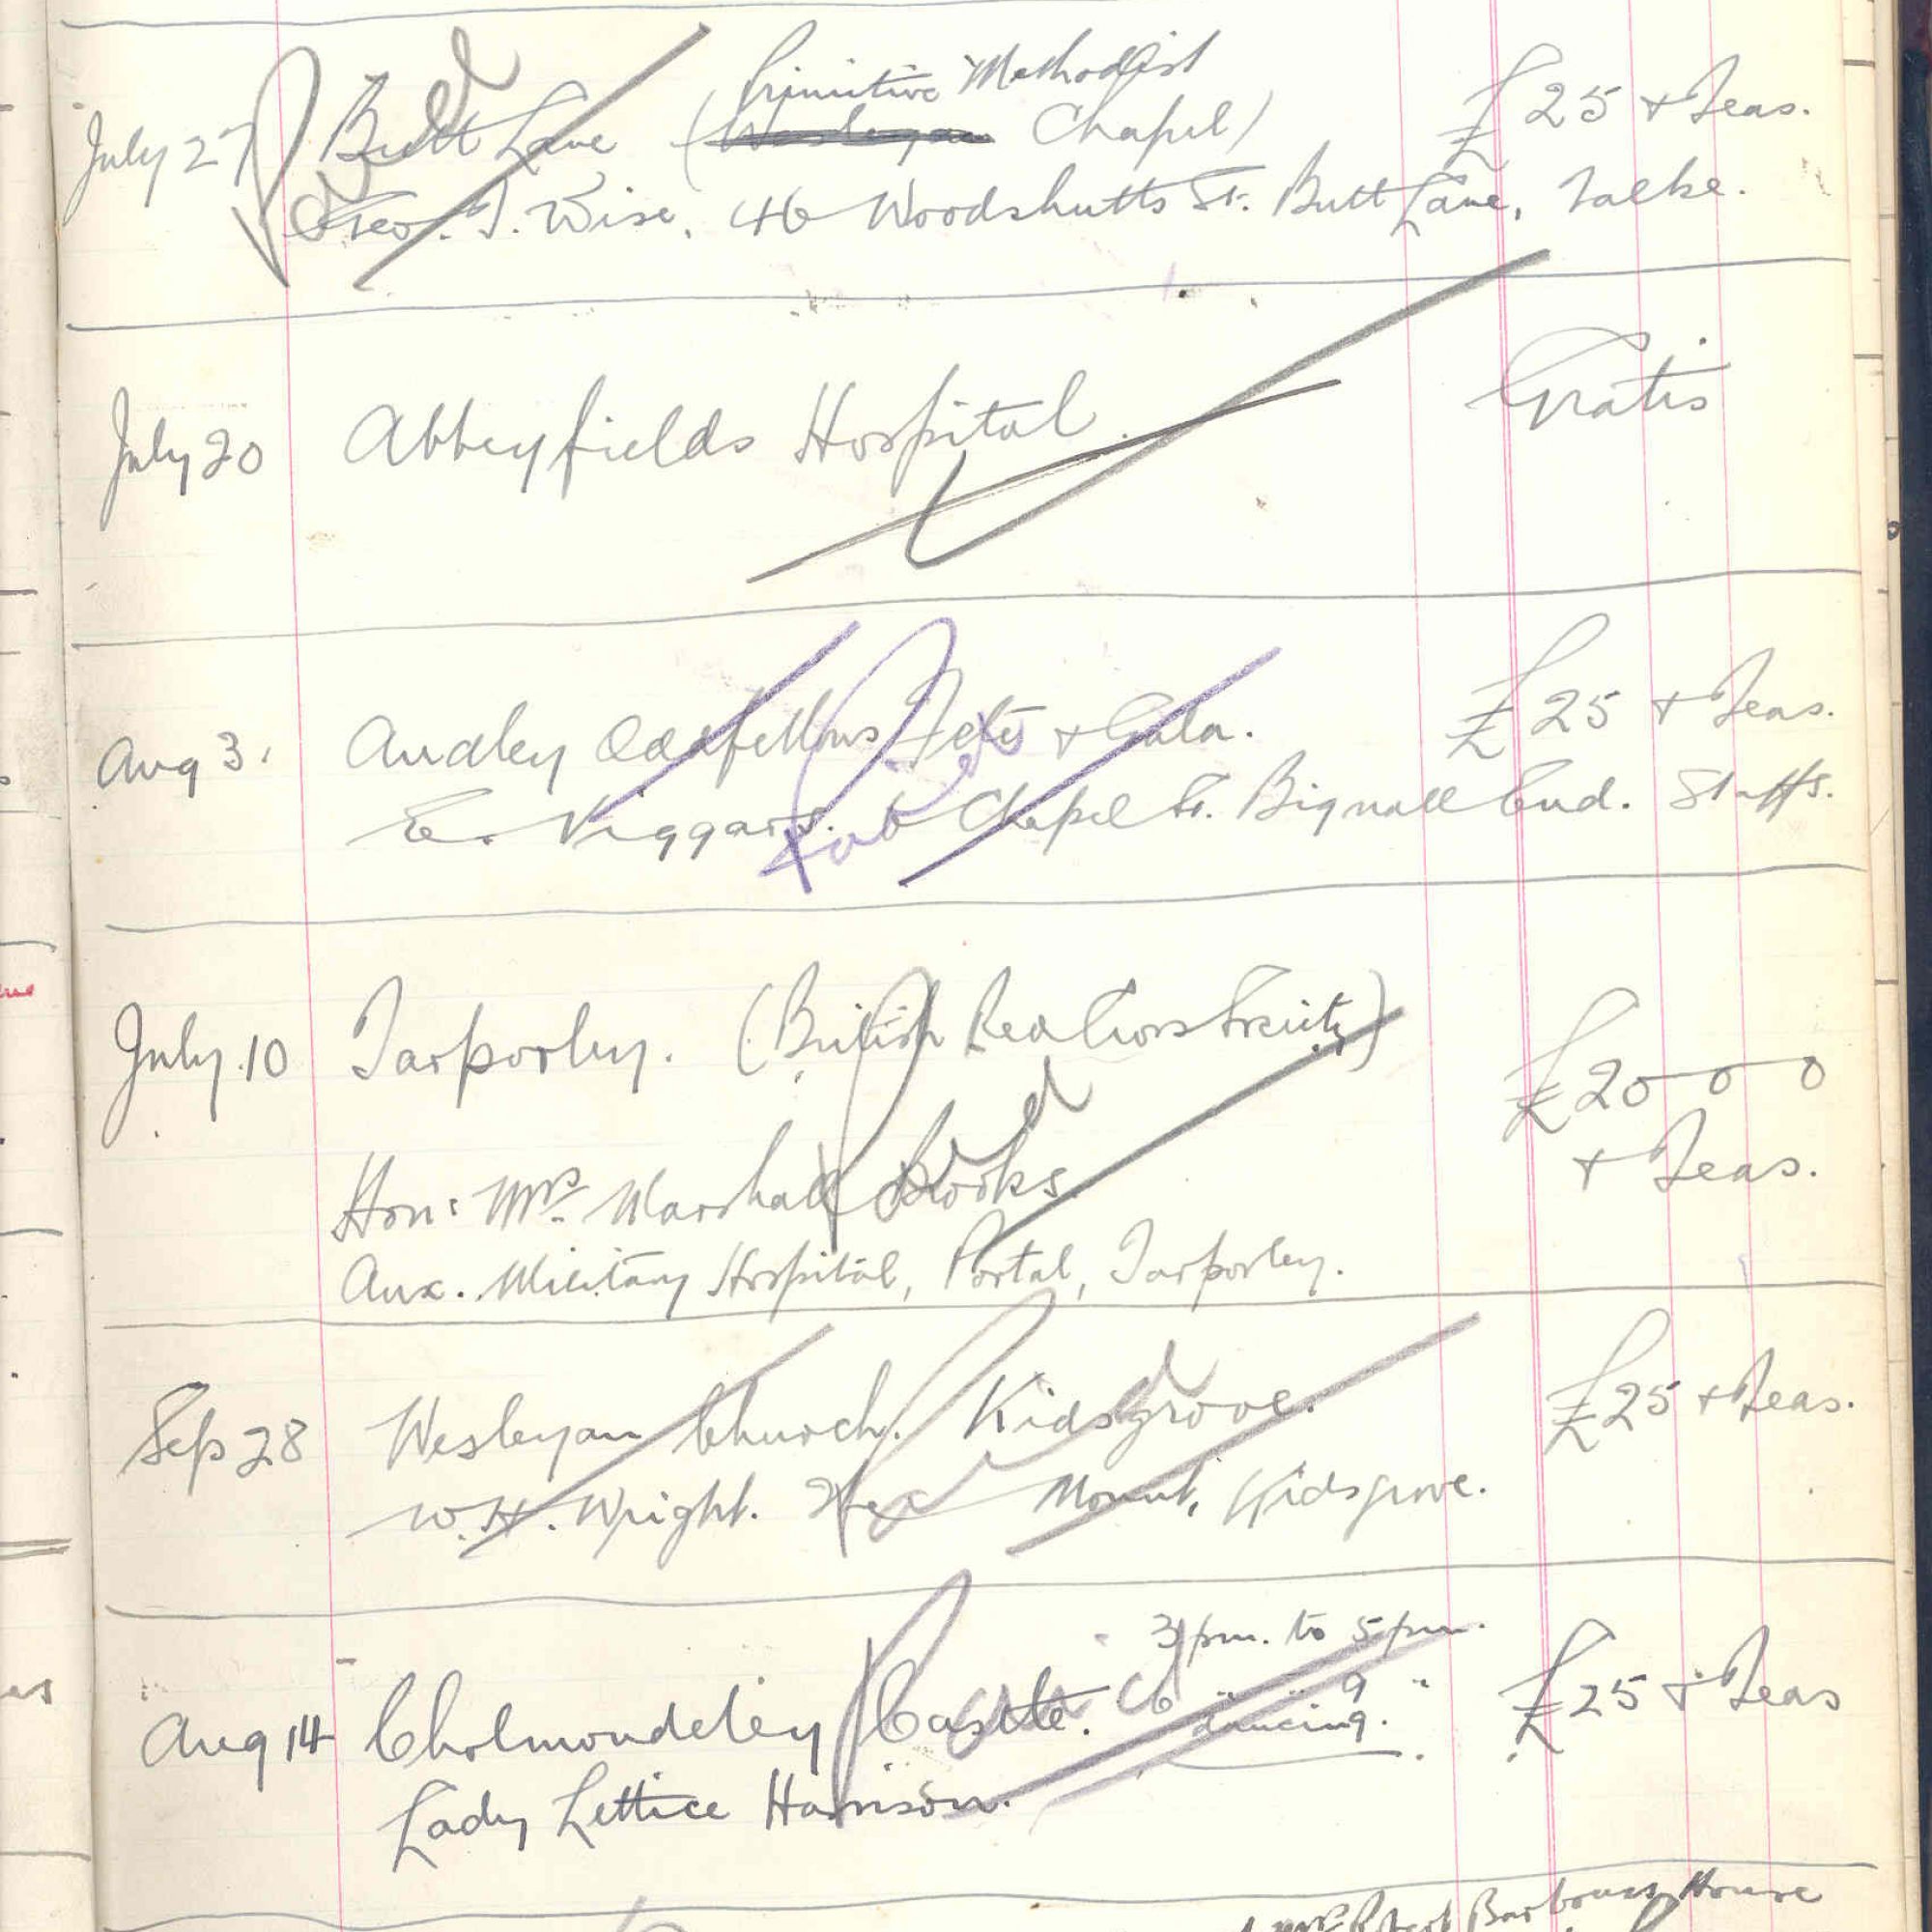 Primitive Methodist
July 27 Butt Lane (Wesleyan Chapel) £25 + Teas.
Paid
Geo. T. Wise, 46 Woodshutts St. Butt Lane, Talke.
July 20 Abbeyfields Hospital. Gratis
Aug 3. Audley Oddfellows Fete + Gala. £25 + Teas.
Paid
E. Viggars. Chapel St. Bignall End. Staffs.
July 10 Tarporley. (British Red Cross Society)
£20 0 0
+ Teas.
Paid
Hon: Mrs. Marshall Brooks.
Aux. Military Hospital, Portal, Tarporley.
Sep 28 Wesleyan Church. Kidsgrove. £25 + Teas.
Paid
W. H. Wright. The Mount, Kidsgrove.
3 pm. to 5 pm.
Aug 14 Cholmondeley Castle. 6 " " 9 " £25 + Teas
dancing.
Paid
Lady Lettice Harrison.
Mrs Robert Barbours House